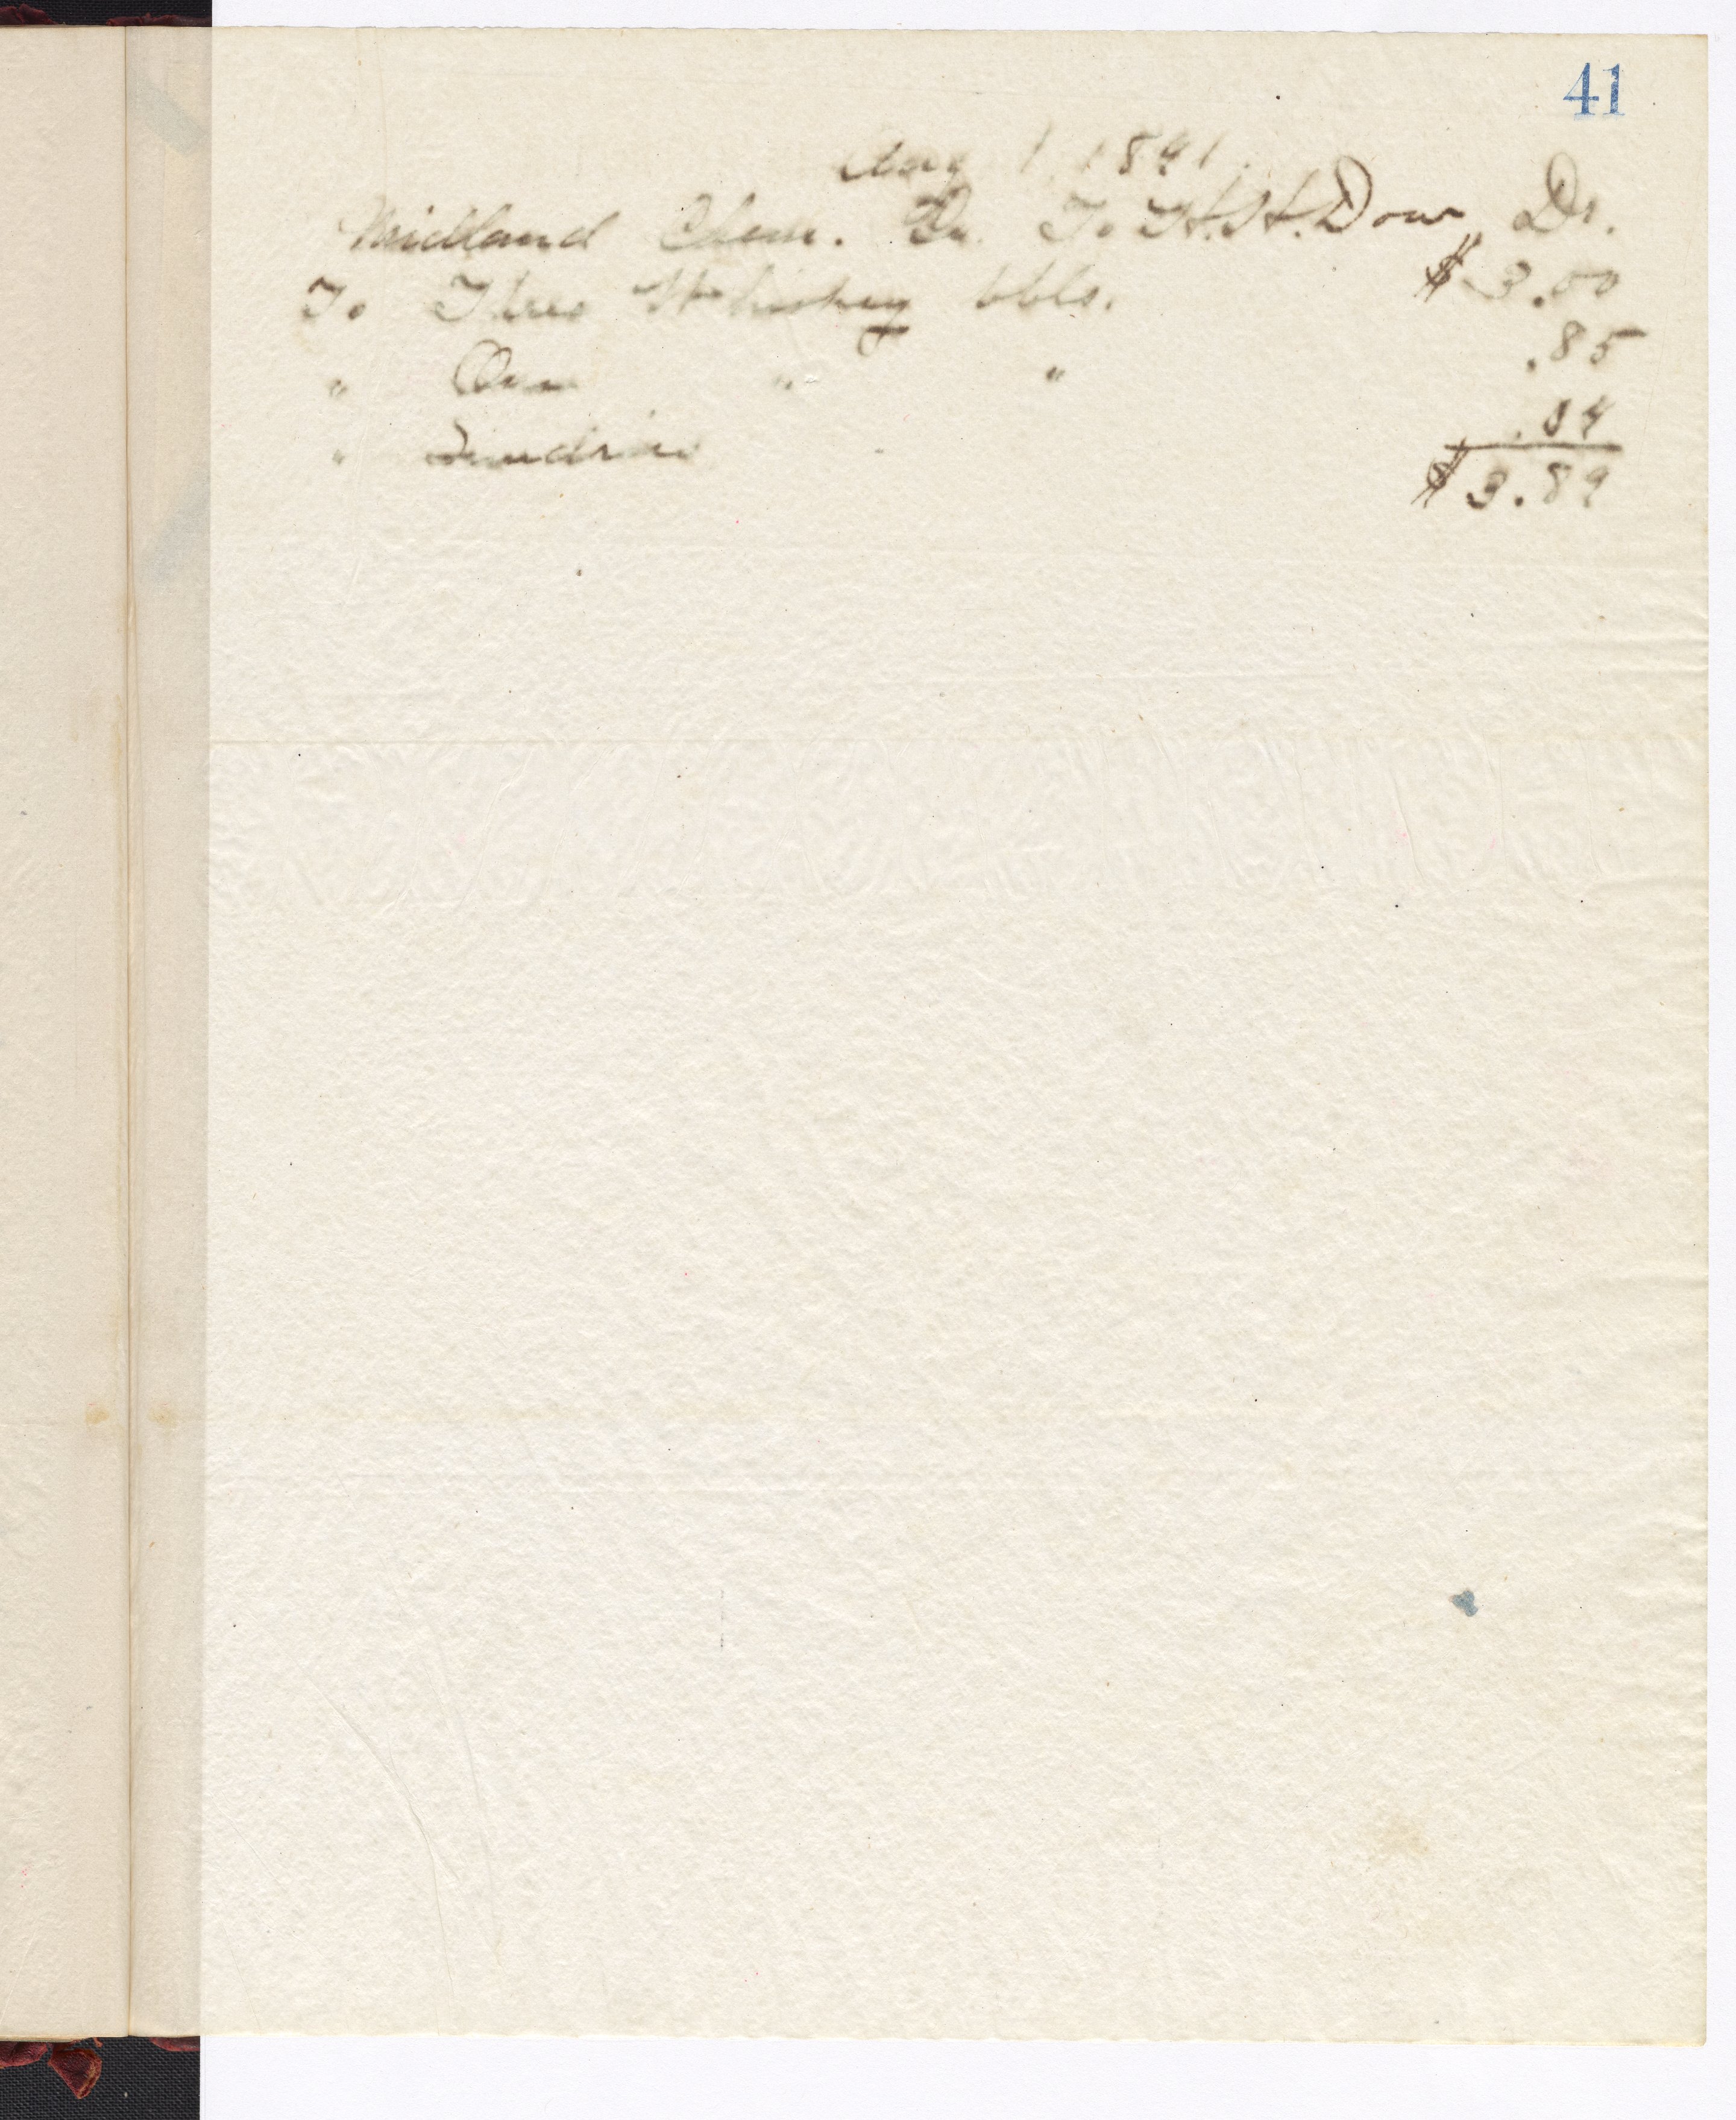 41
Aug 1 1891.
Midland Chem. Co. To H.H. Dow Dr.
To Three Whiskey bbls. $3.00
" One " " .85
" Sundries .04
$3.89